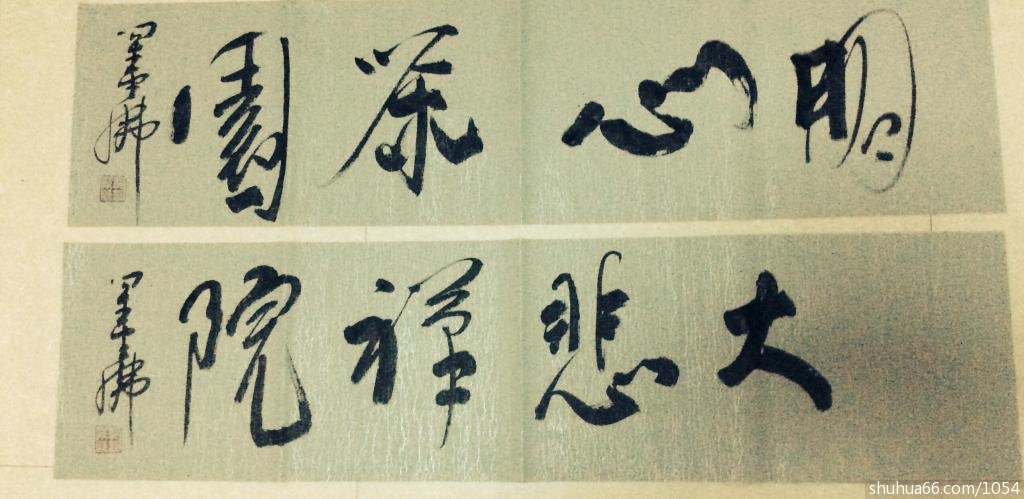 明心茶園
墨佛
大悲禪院
墨佛
shuhua66.com/1054